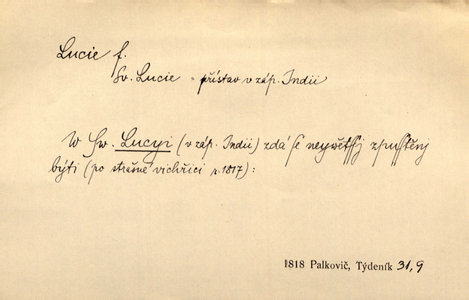 Lucie f.
Sv. Lucie - přístav v záp. Indii
W Sw. Lucyi (v záp. Indii) zdá se neywětssj zpusstěnj
býti (po strašné vichřici r. 1817):
1818 Palkovič, Týdeník 31,9